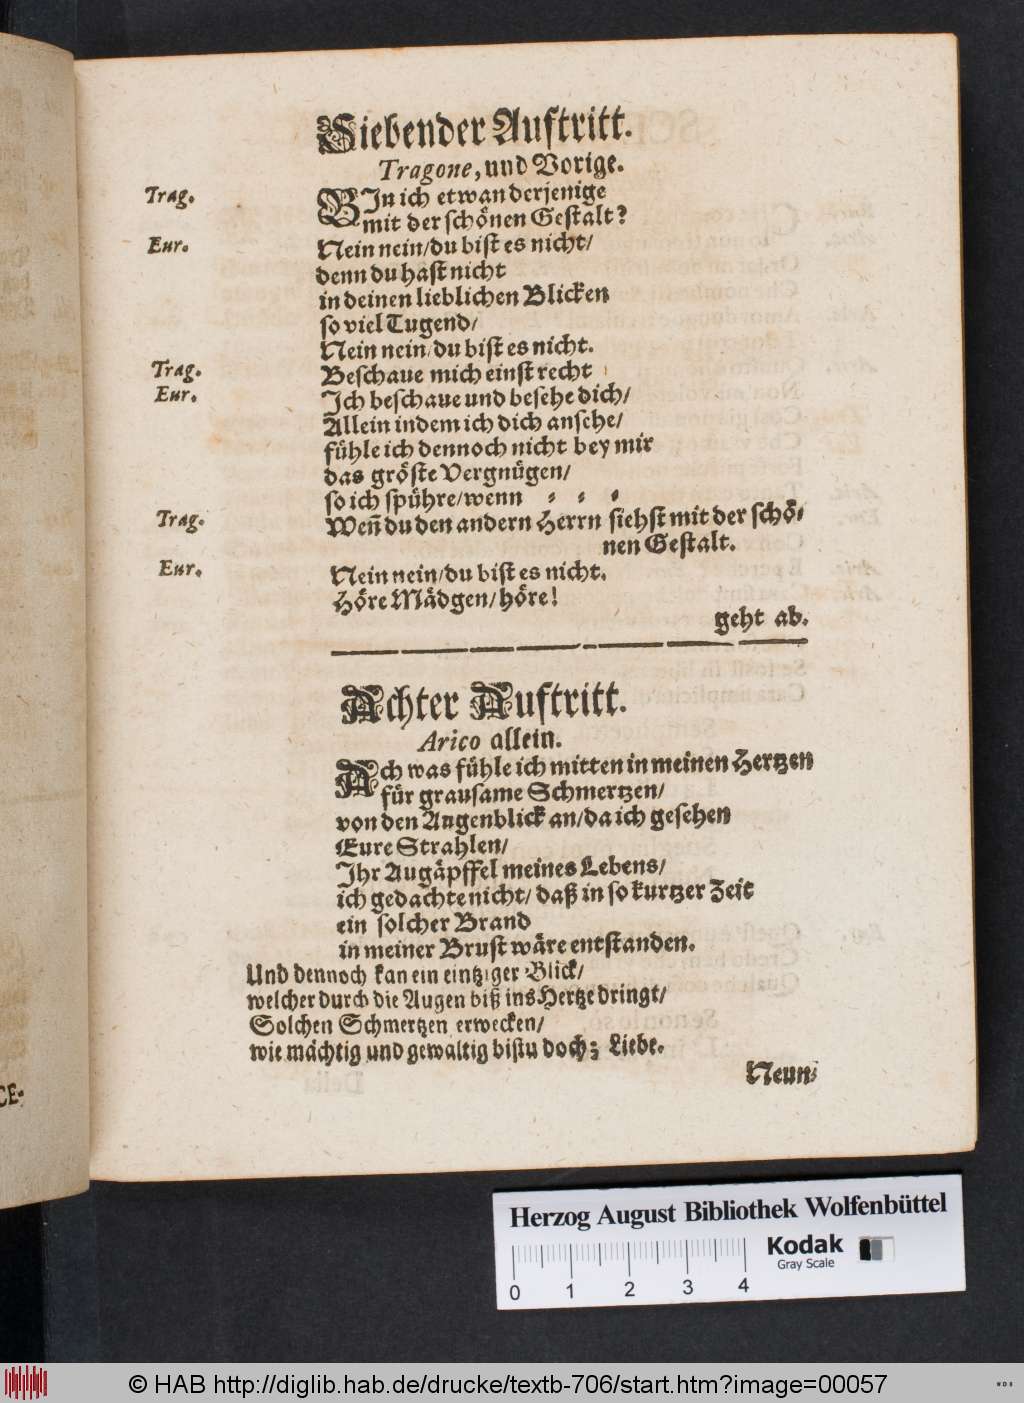 Siebender Auftritt.
Tragone, und Vorige.
Trag. BIn ich etwan derjenige
mit der schönen Gestalt?
Eur. Nein nein/du bist es nicht/
denn du hast nicht
in deinen lieblichen Blicken
so viel Tugend/
Nein nein/du bist es nicht.
Trag. Beschaue mich einst recht
Eur. Ich beschaue und besehe dich/
Allein indem ich dich ansehe/
fühle ich dennoch nicht bey mir
das gröste Vergnügen/
so ich spühre/wenn
Trag. Weñ du den andern Herrn siehst mit der schö-
nen Gestalt.
Eur. Nein nein/du bist es nicht.
Höre Mädgen/höre!
geht ab.
Achter Auftritt.
Arico allein.
Ach was fühle ich mitten in meinen Hertzen
für grausame Schmertzen/
von den Augenblick an/da ich gesehen
Eure Strahlen/
Ihr Augäpffel meines Lebens/
ich gedachte nicht/daß in so kurtzer Zeit
ein solcher Brand
in meiner Brust wäre entstanden.
Und dennoch kan ein eintziger Blick/
welcher durch die Augen biß ins Hertze dringt/
Solchen Schmertzen erwecken/
wie mächtig und gewaltig bistu doch; Liebe.
Neun-
CE-
Herzog August Bibliothek Wolfenbüttel
Kodak
Gray Scale
0 1 2 3 4
© HAB http://diglib.hab.de/drucke/textb-706/start.htm?image=00057